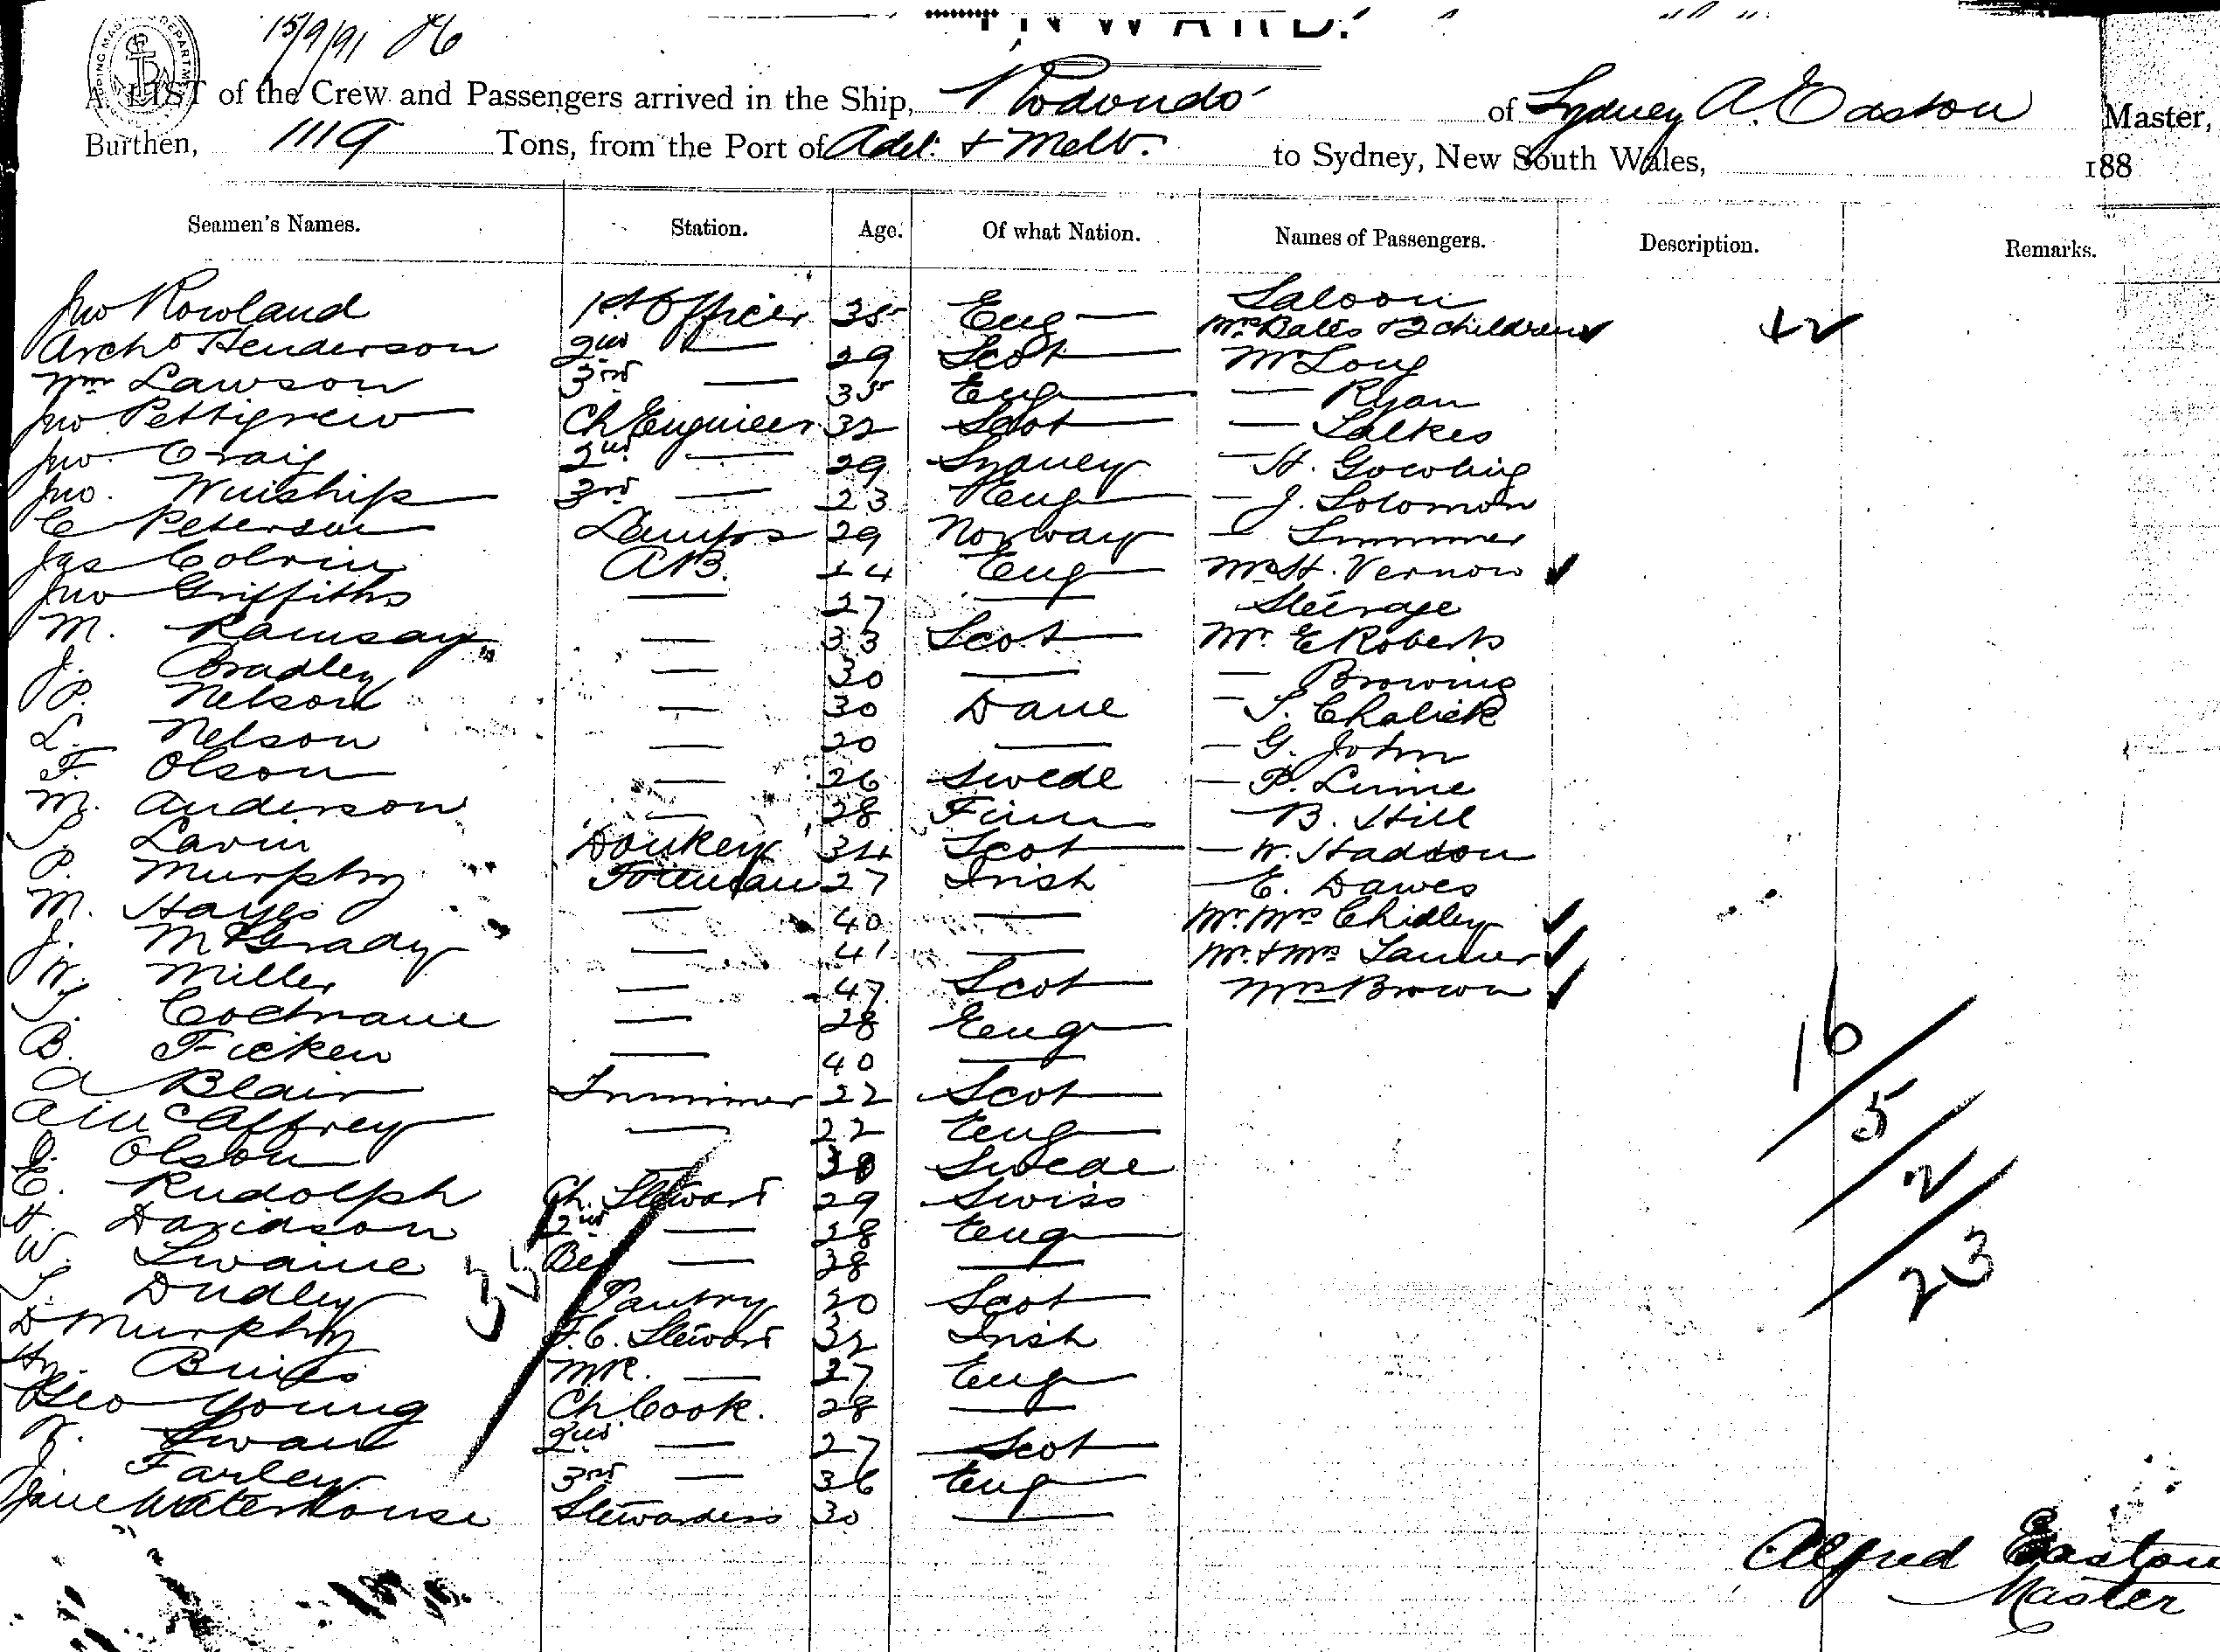 15/9/91
INWARD.
SHIPPING MASTER DEPARTMENT
A LIST of the Crew and Passengers arrived in the Ship, Rodondo of Sydney A. Easton Master,
Burthen, 1119 Tons, from the Port of Adel. & Melb. to Sydney, New South Wales, 188
Seamen's Names. Station. Age. Of what Nation. Names of Passengers. Description. Remarks.
Saloon
Jno Rowland 1st Officer 35 Eng — Mrs Bates & 2 children
Archd Henderson 2nd — 29 Scot Mr Long
Wm Lawson 3rd — 35 Eng — Ryan
Jno Pettigrew Ch Engineer 32 Scot — Salkes
Jno. Craig 2nd — 29 Sydney — H. Gocoling
Jno. Winship 3rd — 23 Eng — J. Solomon
C Peterson Lamps 29 Norway — Summer
Jas Colvin A.B. 14 Eng Mrs H. Vernon
Jno Griffiths — 27 — Steerage
M. Ramsay — 33 Scot Mr. E Roberts
J. Bradley — 30 — — Browing
P. Nelson — 30 Dane — S. Chalick
L. Nelson — 20 — — G. John
F. Olson — 26 Swede — P. Linne
M. Anderson — 28 Finn — B. Hill
Lavin Donkey 34 Scot — W. Haddon
P. Murphy Foreman 27 Irish — E. Dawes
M. Hayes — 40 — Mr. Mrs Chidley
J. McGrady — 41 — Mr. & Mrs Tanner
W. Miller — 47 Scot Mrs Brown
T. Cochrane — 28 Eng
B. Ficken — 40 —
A Blair Trimmer 22 Scot
A McCaffrey — 22 Eng
J. Olson — 30 Swede
E. Rudolph Ch. Steward 29 Swiss
H. Davidson 2nd — 28 Eng
W. Swaine — 28 —
T. Dudley Pantry 20 Scot
D Murphy F.C. Steward 32 Irish
Hy. Binks M.R. — 27 Eng
Geo Young Ch Cook. 28 —
Swan 2nd — 27 Scot
J. Farley 3rd — 36 Eng
Jane Waterhouse Stewardess 30 —
35
16
5
2
23
Alfred Easton
Master